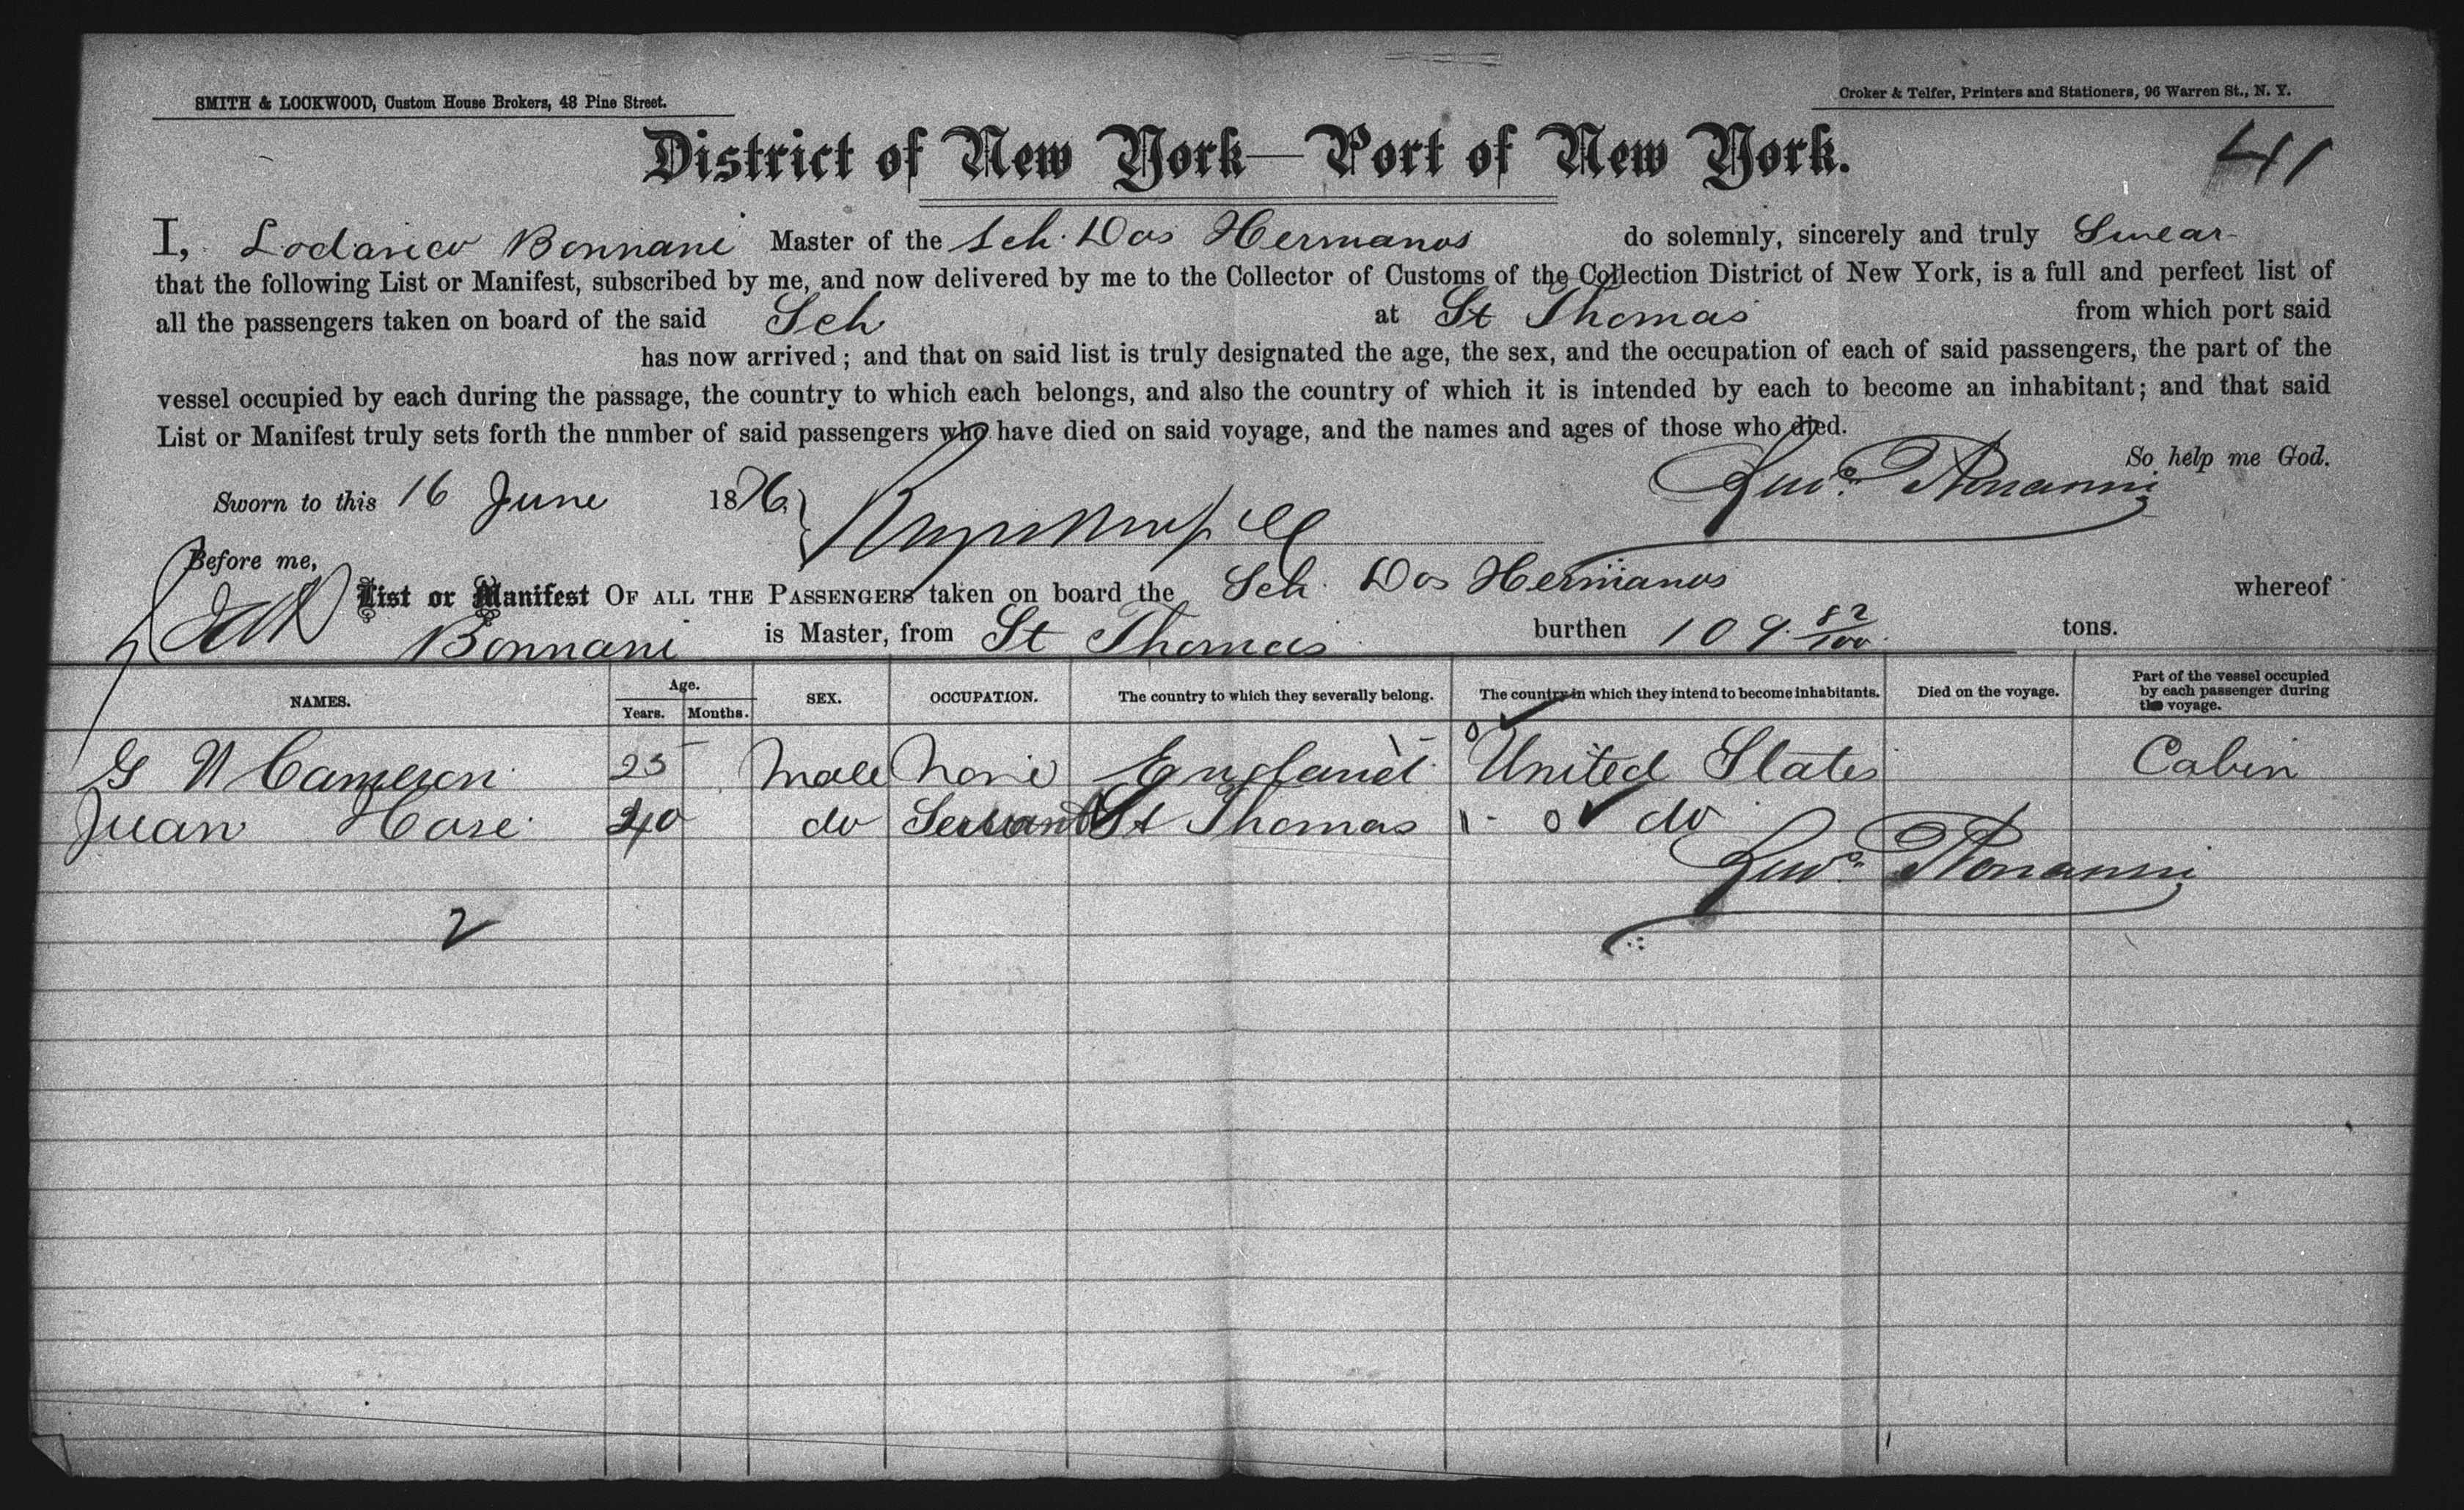 SMITH & LOCKWOOD, Custom House Brokers, 48 Pine Street.
Croker & Telfer, Printers and Stationers, 96 Warren St., N. Y.
District of New York—Port of New York.
411
I, Lodarico Bonnani Master of the Sch. Dos Hermanos do solemnly, sincerely and truly Swear
that the following List or Manifest, subscribed by me, and now delivered by me to the Collector of Customs of the Collection District of New York, is a full and perfect list of
all the passengers taken on board of the said Sch at St Thomas from which port said
has now arrived; and that on said list is truly designated the age, the sex, and the occupation of each of said passengers, the part of the
vessel occupied by each during the passage, the country to which each belongs, and also the country of which it is intended by each to become an inhabitant; and that said
List or Manifest truly sets forth the number of said passengers who have died on said voyage, and the names and ages of those who died.
So help me God.
Sworn to this 16 June 1876 Ludo Bonanni
Before me,
List or Manifest OF ALL THE PASSENGERS taken on board the Sch Dos Hermanos whereof
Bonnani is Master, from St Thomas burthen 109 82/100 tons.
NAMES. Age. Years. Months. SEX. OCCUPATION. The country to which they severally belong. The country in which they intend to become inhabitants. Died on the voyage. Part of the vessel occupied by each passenger during the voyage.
G N Cameron 25 Male None England United States Cabin
Juan Hose 40 do Servant St Thomas do
Ludo Bonanni
2